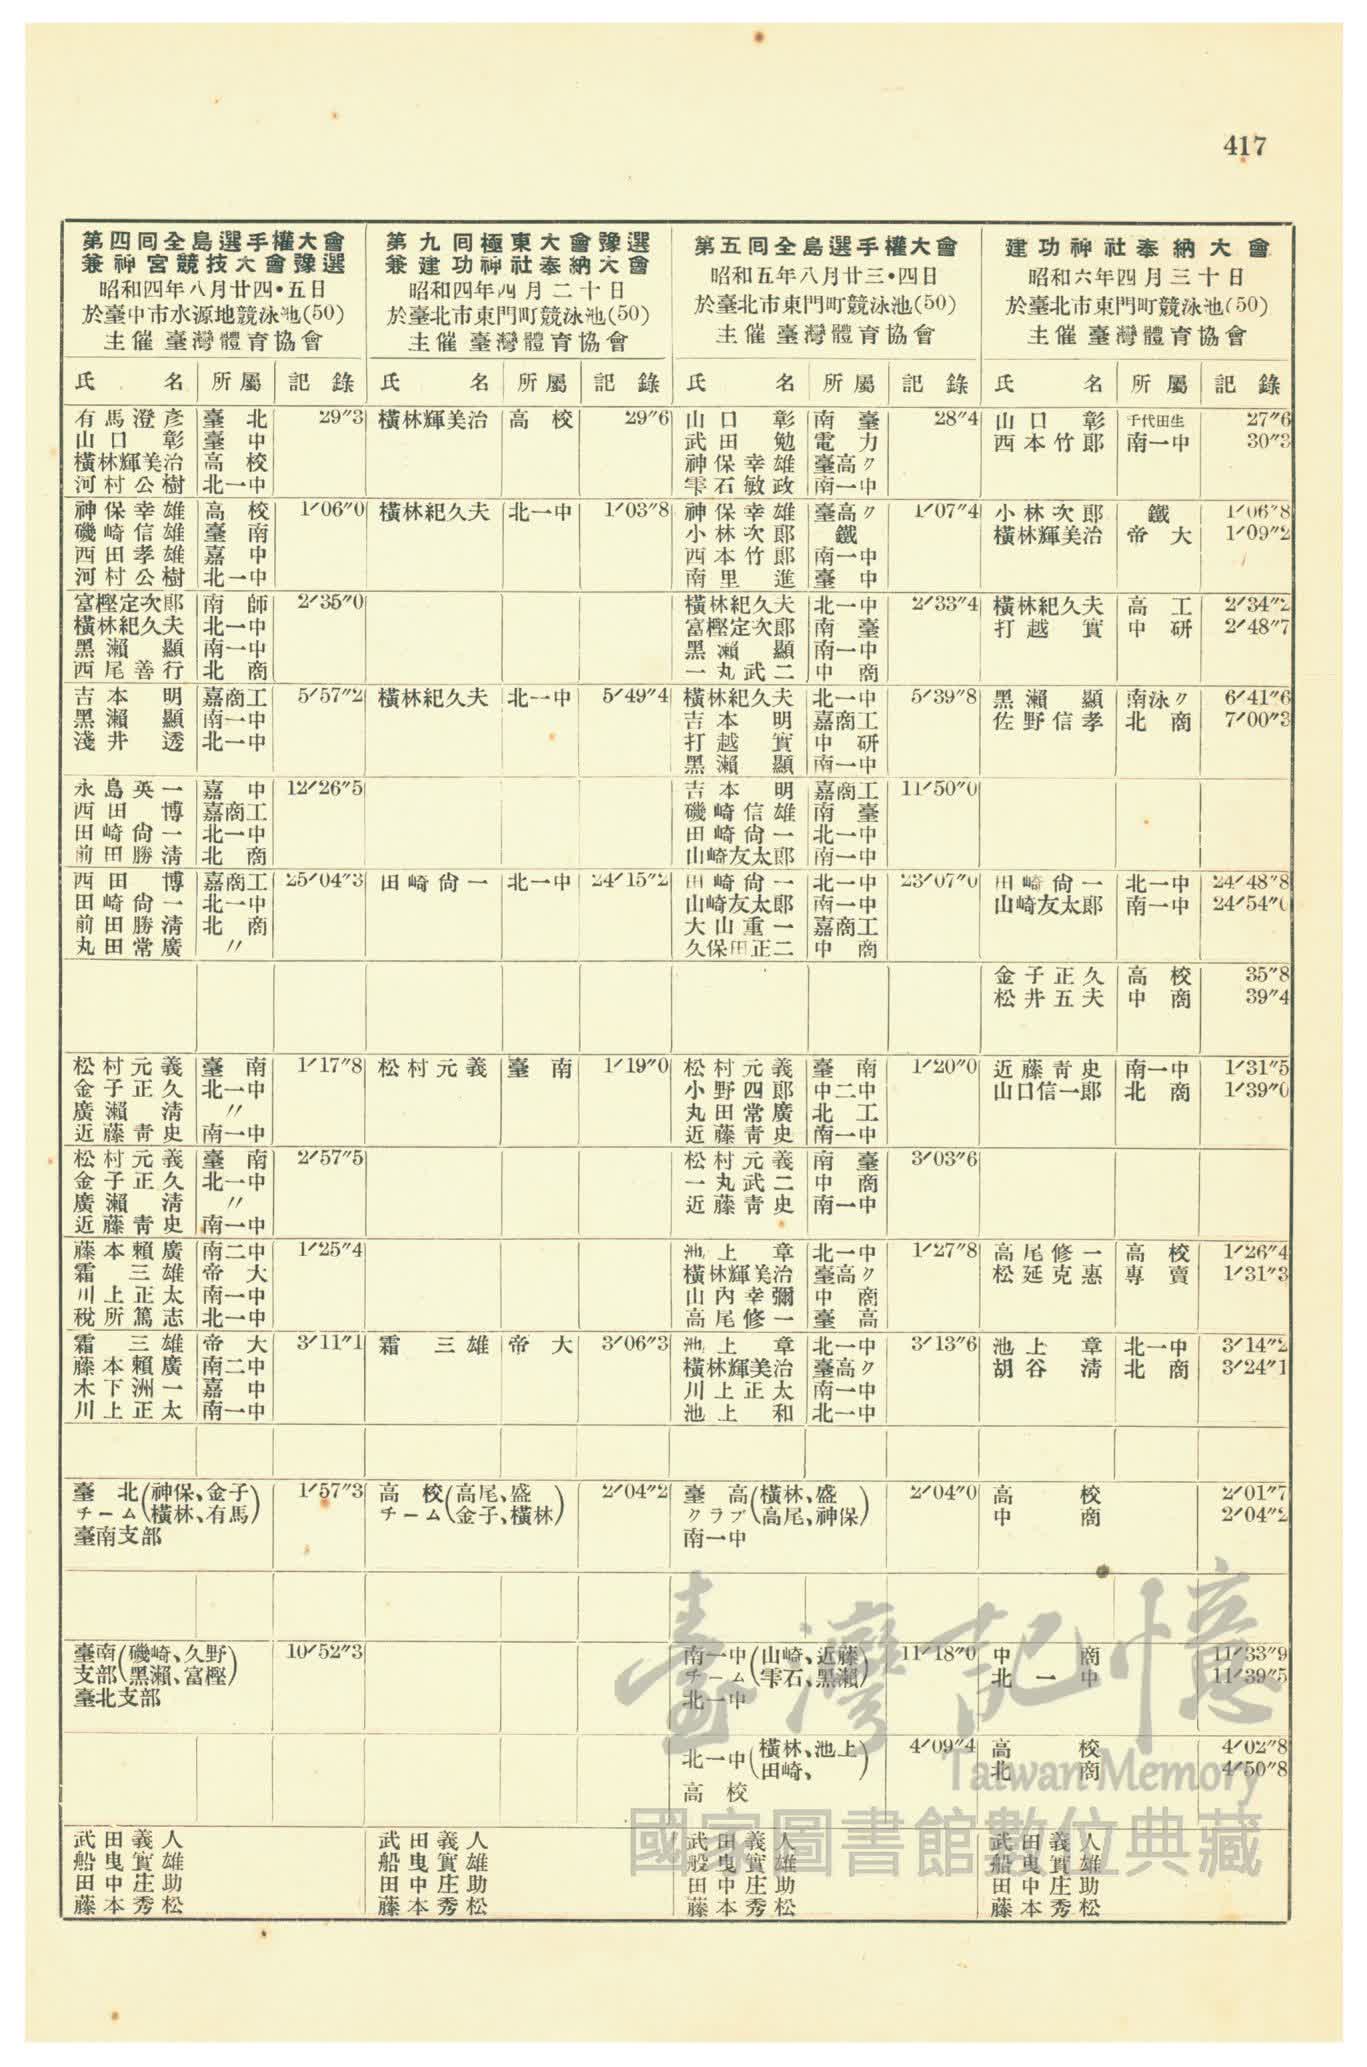 417
第四回全島選手權大會
兼神宮競技大會豫選
昭和四年八月廿四・五日
於臺中市水源地競泳池(50)
主催 臺灣體育協會
第九回極東大會豫選
兼建功神社奉納大會
昭和四年四月二十日
於臺北市東門町競泳池(50)
主催 臺灣體育協會
第五回全島選手權大會
昭和五年八月廿三・四日
於臺北市東門町競泳池(50)
主催 臺灣體育協會
建功神社奉納大會
昭和六年四月三十日
於臺北市東門町競泳池(50)
主催 臺灣體育協會
氏名 所屬 記錄 氏名 所屬 記錄 氏名 所屬 記錄 氏名 所屬 記錄
有馬澄彥 臺北 29″3 橫林輝美治 高校 29″6 山口彰 南臺 28″4 山口彰 千代田生 27″6
山口彰 臺中 武田勉 電力 西本竹郞 南一中 30″3
橫林輝美治 高校 神保幸雄 臺高ク
河村公樹 北一中 雫石敏政 南一中
神保幸雄 高校 1′06″0 橫林紀久夫 北一中 1′03″8 神保幸雄 臺高ク 1′07″4 小林次郞 鐵 1′06″8
磯崎信雄 臺南 小林次郞 鐵 橫林輝美治 帝大 1′09″2
西田孝雄 嘉中 西本竹郞 南一中
河村公樹 北一中 南里進 臺中
富樫定次郞 南師 2′35″0 橫林紀久夫 北一中 2′33″4 橫林紀久夫 高工 2′34″2
橫林紀久夫 北一中 富樫定次郞 南臺 打越實 中研 2′48″7
黑瀨顯 南一中 黑瀨顯 南一中
西尾善行 北商 一丸武二 中商
吉本明 嘉商工 5′57″2 橫林紀久夫 北一中 5′49″4 橫林紀久夫 北一中 5′39″8 黑瀨顯 南泳ク 6′41″6
黑瀨顯 南一中 吉本明 嘉商工 佐野信孝 北商 7′00″3
淺井透 北一中 打越實 中研
黑瀨顯 南一中
永島英一 嘉中 12′26″5 吉本明 嘉商工 11′50″0
西田博 嘉商工 磯崎信雄 南臺
田崎尙一 北一中 田崎尙一 北一中
前田勝淸 北商 山崎友太郞 南一中
西田博 嘉商工 25′04″3 田崎尙一 北一中 24′15″2 田崎尙一 北一中 23′07″0 田崎尙一 北一中 24′48″8
田崎尙一 北一中 山崎友太郞 南一中 山崎友太郞 南一中 24′54″0
前田勝淸 北商 大山重一 嘉商工
丸田常廣 〃 久保田正二 中商
金子正久 高校 35″8
松井五夫 中商 39″4
松村元義 臺南 1′17″8 松村元義 臺南 1′19″0 松村元義 臺南 1′20″0 近藤靑史 南一中 1′31″5
金子正久 北一中 小野四郞 中二中 山口信一郞 北商 1′39″0
廣瀨淸 〃 丸田常廣 北工
近藤靑史 南一中 近藤靑史 南一中
松村元義 臺南 2′57″5 松村元義 南臺 3′03″6
金子正久 北一中 一丸武二 中商
廣瀨淸 〃 近藤靑史 南一中
近藤靑史 南一中
藤本賴廣 南二中 1′25″4 池上章 北一中 1′27″8 高尾修一 高校 1′26″4
霜三雄 帝大 橫林輝美治 臺高ク 松延克惠 專賣 1′31″3
川上正太 南一中 山內幸彌 中商
稅所篤志 北一中 高尾修一 臺高
霜三雄 帝大 3′11″1 霜三雄 帝大 3′06″3 池上章 北一中 3′13″6 池上章 北一中 3′14″2
藤本賴廣 南二中 橫林輝美治 臺高ク 胡谷淸 北商 3′24″1
木下洲一 嘉中 川上正太 南一中
川上正太 南一中 池上和 北一中
臺北(神保、金子 1′57″3 高校(高尾、盛) 2′04″2 臺高(橫林、盛) 2′04″0 高校 2′01″7
チーム 橫林、有馬) チーム(金子、橫林) クラブ(高尾、神保) 中商 2′04″2
臺南支部 南一中
臺南(磯崎、久野 10′52″3 南一中(山崎、近藤 11′18″0 中商 11′33″9
支部 黑瀨、富樫) チーム(雫石、黑瀨) 北一中 11′39″5
臺北支部 北一中
北一中(橫林、池上 4′09″4 高校 4′02″8
田崎、 ) 北商 4′50″8
高校
武田義人 武田義人 武田義人 武田義人
船曳實雄 船曳實雄 船曳實雄 船曳實雄
田中庄助 田中庄助 田中庄助 田中庄助
藤本秀松 藤本秀松 藤本秀松 藤本秀松
臺灣記憶
Taiwan Memory
國家圖書館數位典藏